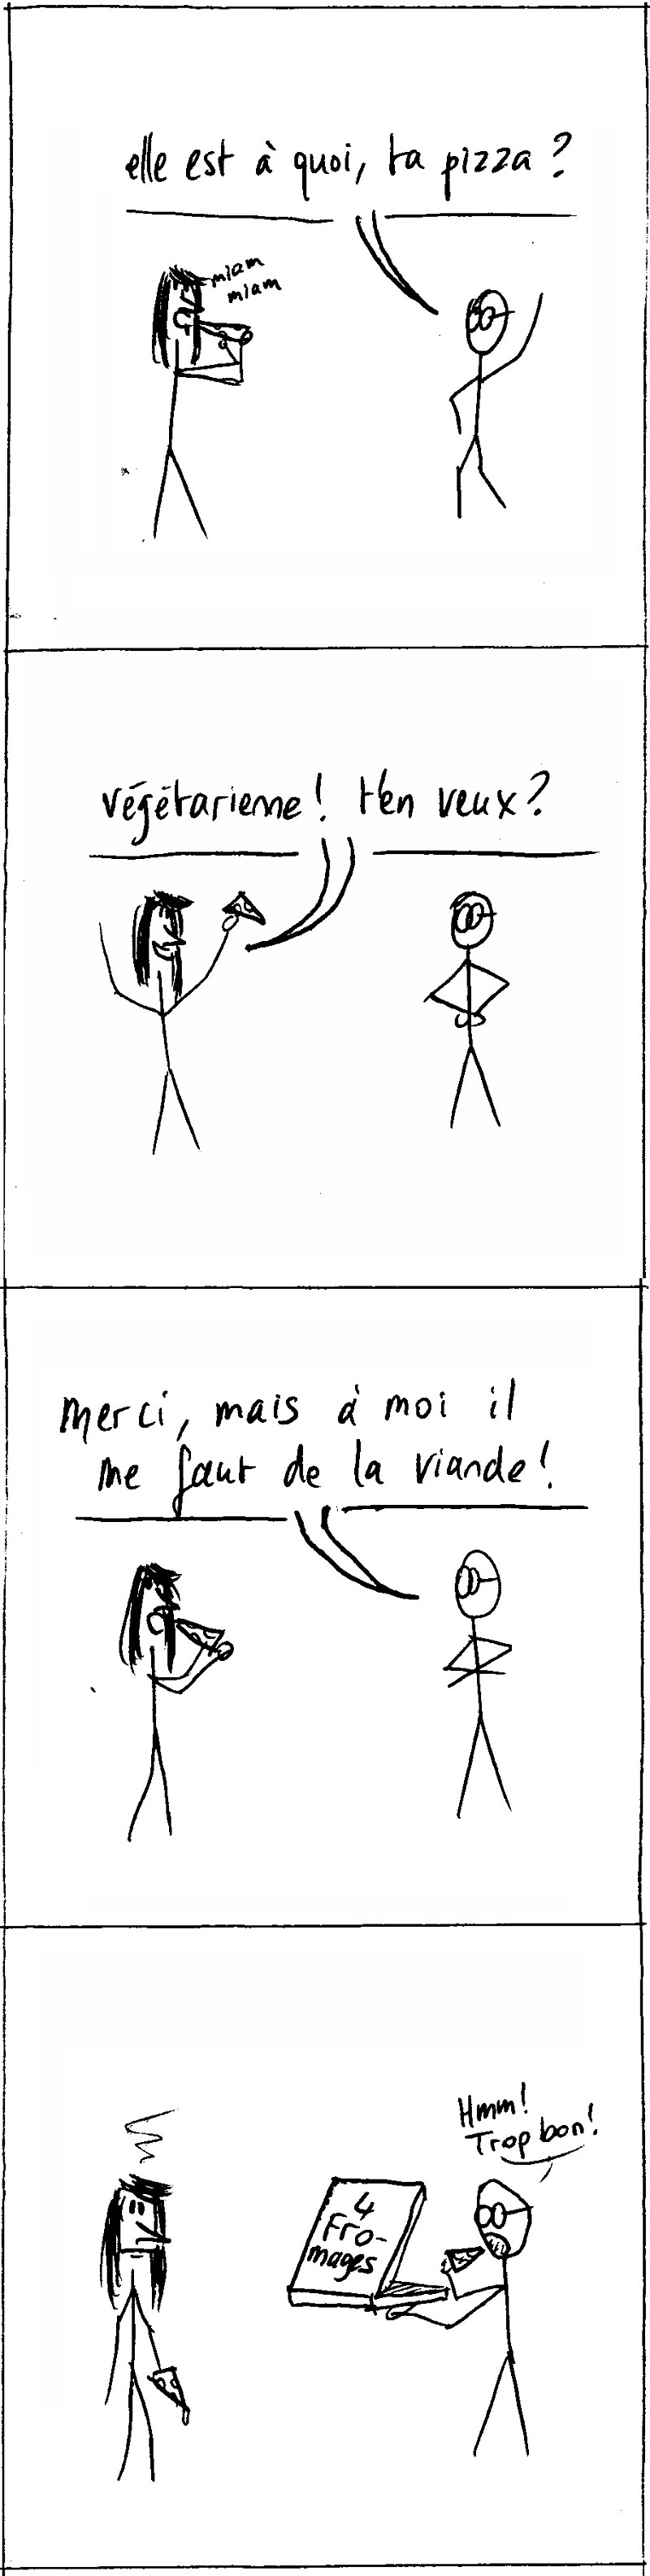 elle est à quoi, ta pizza ?
miam
miam
végétarienne ! t'en veux ?
Merci, mais à moi il
me faut de la viande !
Hmm !
Trop bon !
4
Fro-
mages